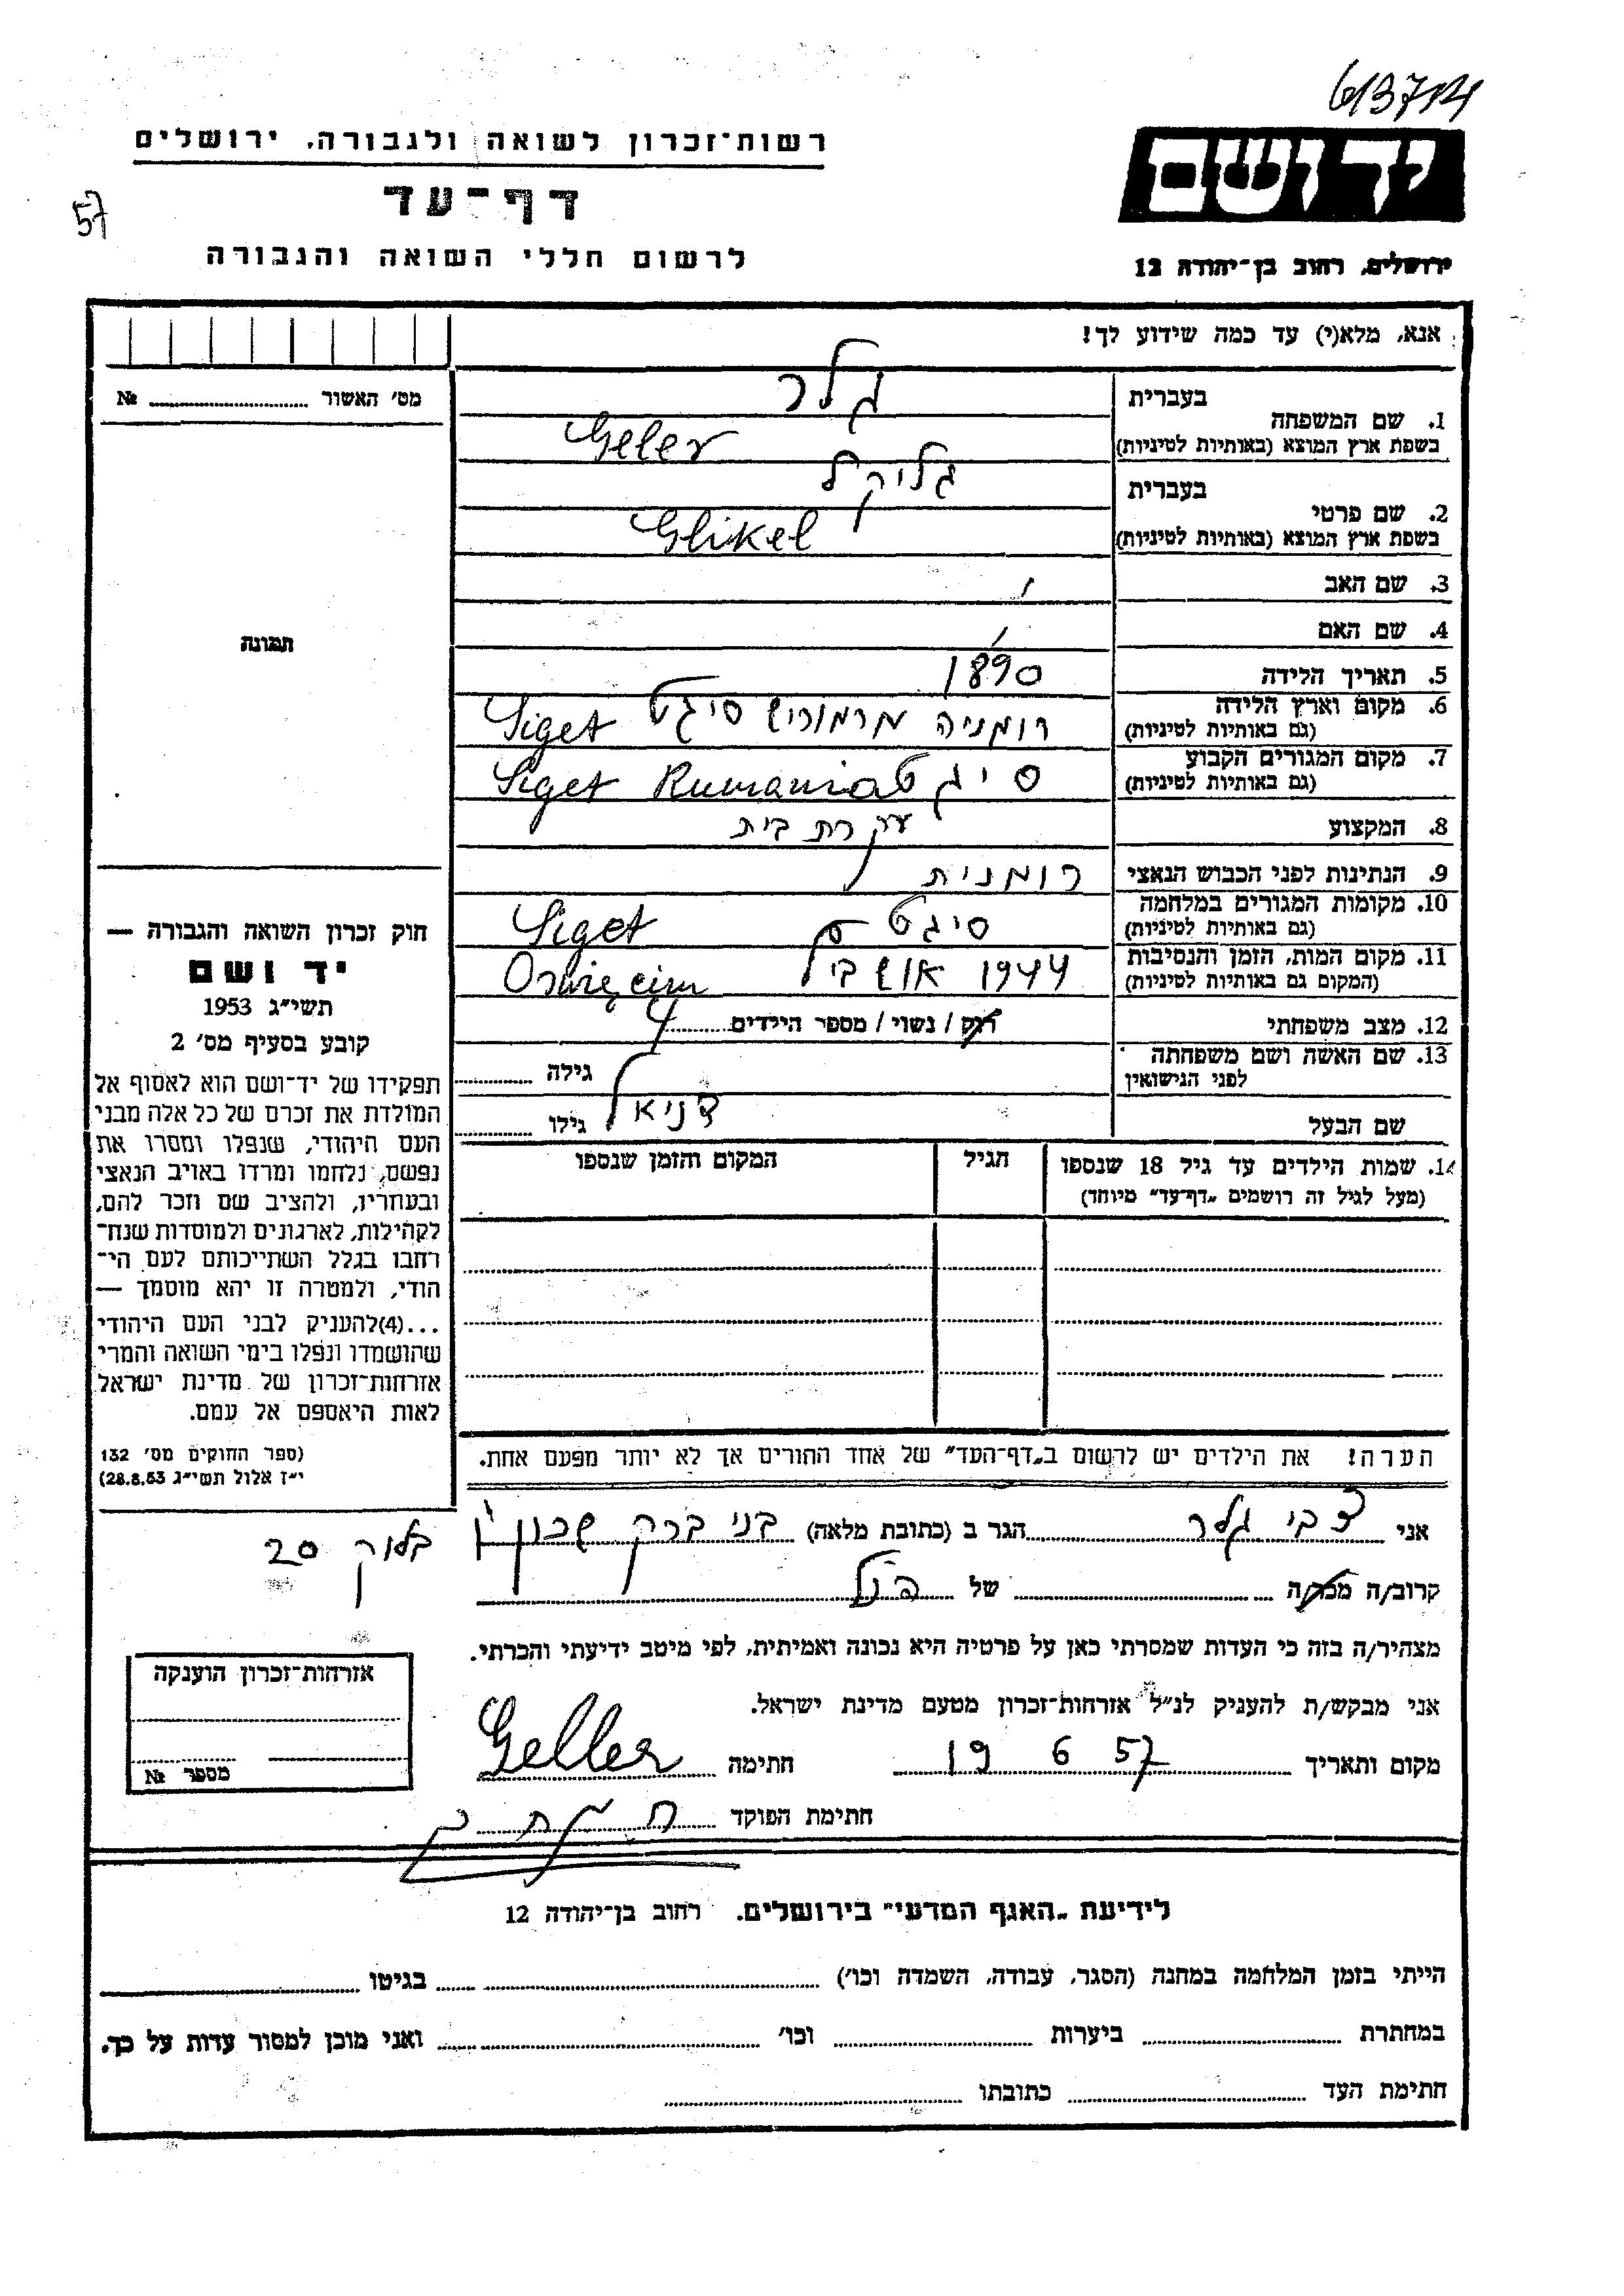 61374
רשות־זכרון לשואה ולגבורה, ירושלים
יד ושם
דף־עד
57
לרשום חללי השואה והגבורה
ירושלים, רחוב בן־יהודה 12
אנא, מלא(י) עד כמה שידוע לך!
מס׳ האשור № ............
בעברית גלר
1. שם המשפחה
בשפת ארץ המוצא (באותיות לטיניות) Geler
בעברית גליקל
2. שם פרטי
בשפת ארץ המוצא (באותיות לטיניות) Glikel
3. שם האב
4. שם האם
תמונה
5. תאריך הלידה 1890
6. מקום וארץ הלידה
(גם באותיות לטיניות) רומניה מרמוריש סיגט Siget
7. מקום המגורים הקבוע
(גם באותיות לטיניות) סיגט Siget Rumania
8. המקצוע עקרת בית
9. הנתינות לפני הכבוש הנאצי רומנית
10. מקומות המגורים במלחמה
(גם באותיות לטיניות) סיגט Siget
11. מקום המות, הזמן והנסיבות
(המקום גם באותיות לטיניות) 1944 Oswięcim
12. מצב משפחתי רוק / נשוי / מספר הילדים 4
13. שם האשה ושם משפחתה
לפני הנישואין גילה
שם הבעל דניאל גילו
14. שמות הילדים עד גיל 18 שנספו
(מעל לגיל זה רושמים „דף־עד״ מיוחד)
הגיל
המקום והזמן שנספו
חוק זכרון השואה והגבורה —
יד ושם
תשי״ג 1953
קובע בסעיף מס׳ 2
תפקידו של יד־ושם הוא לאסוף אל
המולדת את זכרם של כל אלה מבני
העם היהודי, שנפלו ומסרו את
נפשם, נלחמו ומרדו באויב הנאצי
ובעוזריו, ולהציב שם וזכר להם,
לקהילות, לארגונים ולמוסדות שנח־
רחבו בגלל השתייכותם לעם הי־
הודי, ולמטרה זו יהא מוסמך —
...(4)להעניק לבני העם היהודי
שהושמדו ונפלו בימי השואה והמרי
אזרחות־זכרון של מדינת ישראל
לאות היאספם אל עמם.
(ספר החוקים מס׳ 132
י״ז אלול תשי״ג 28.8.53)
הערה! את הילדים יש לרשום ב„דף־העד״ של אחד ההורים אך לא יותר מפעם אחת.
אני צבי גלר הגר ב (כתובת מלאה) בני ברק שכון
בלוק 20
קרוב/ה מכר/ה של הנ״ל
מצהיר/ה בזה כי העדות שמסרתי כאן על פרטיה היא נכונה ואמיתית, לפי מיטב ידיעתי והכרתי.
אני מבקש/ת להעניק לנ״ל אזרחות־זכרון מטעם מדינת ישראל.
מקום ותאריך 19 6 57 חתימה Geller
חתימת הפוקד
אזרחות־זכרון הוענקה
מספר №
לידיעת „האגף המדעי״ בירושלים, רחוב בן־יהודה 12
הייתי בזמן המלחמה במחנה (הסגר, עבודה, השמדה וכו׳) בגיטו
במחתרת ביערות וכו׳ ואני מוכן למסור עדות על כך.
חתימת העד כתובתו